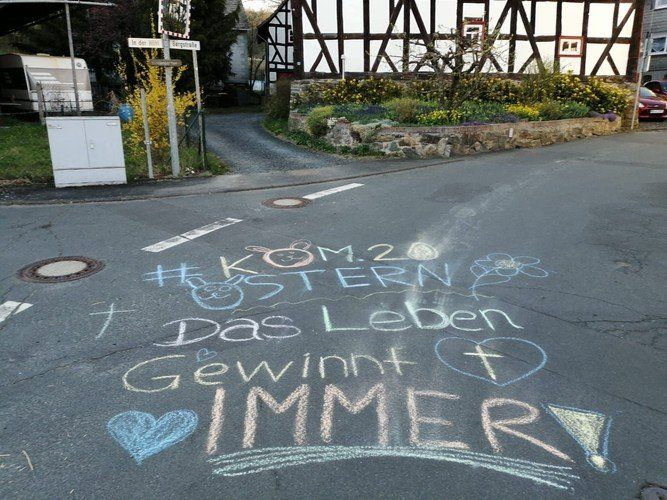 In der
Bergstraße
KOM.2
#OSTERN
Das Leben
Gewinnt
IMMER!